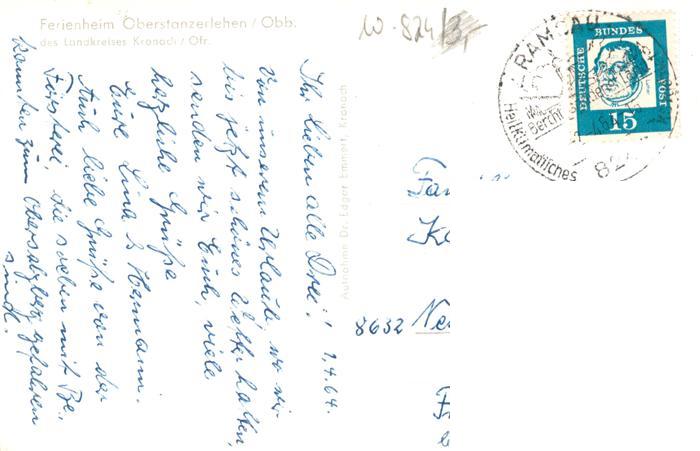 Ferienheim Oberstanzerlehen / Obb.
des Landkreises Kronach / Ofr.
10-824/3,-
Ihr lieben alle Drei! 1.4.64.
Von unserem Urlaub, wo wir
bis jetzt schönes Wetter hatten,
senden wir Euch, viele
herzliche Grüße
Eure Lina & Hermann.
Auch liebe Grüße von der
die soeben mit Be-
kannten zum Obersalzberg gefahren
sind!
Aufnahme Dr. Edgar Emmert, Kronach
8632
RAMSAU
Heilklimatisches
82
DEUTSCHE BUNDESPOST
15